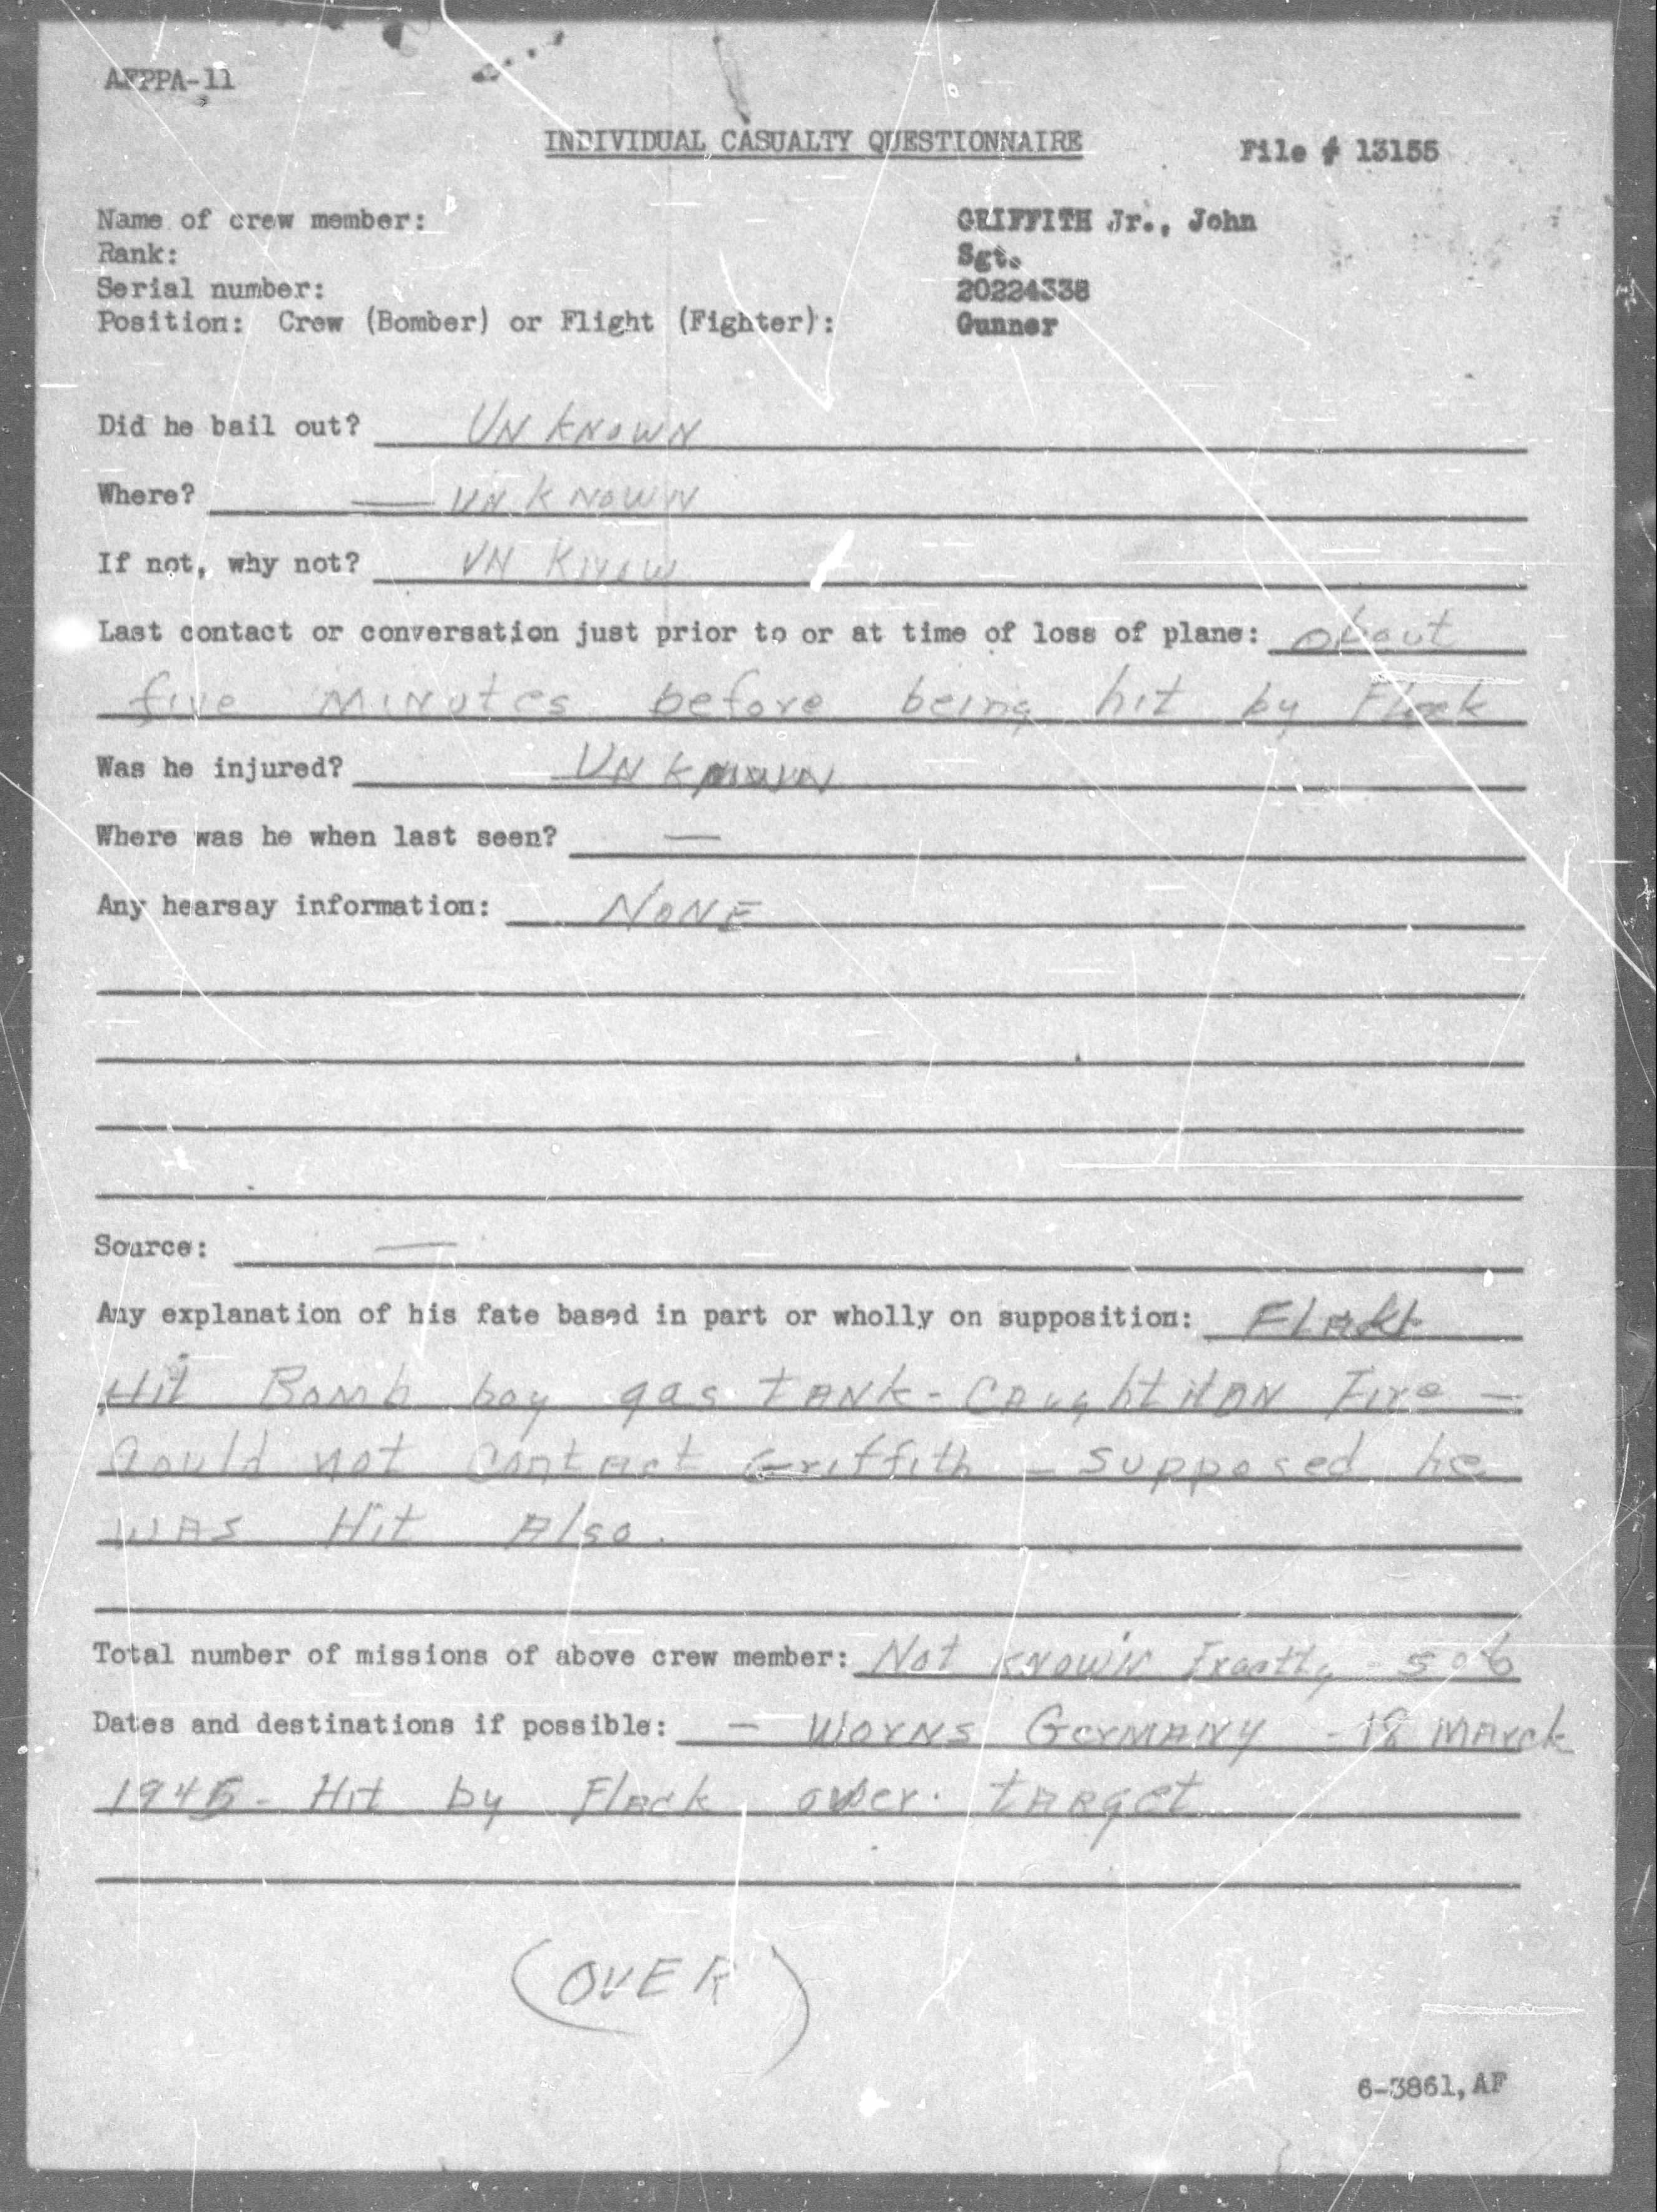 AFPPA-11
INDIVIDUAL CASUALTY QUESTIONNAIRE
File # 13155
Name of crew member: GRIFFITH Jr., John
Rank: Sgt.
Serial number: 20224338
Position: Crew (Bomber) or Flight (Fighter): Gunner
Did he bail out? UNKNOWN
Where? — UNKNOWN
If not, why not? UNKNOW
Last contact or conversation just prior to or at time of loss of plane: about
five MINUtes before being hit by Flack
Was he injured? UNKNOWN
Where was he when last seen? —
Any hearsay information: NONE
Source: —
Any explanation of his fate based in part or wholly on supposition: FLAK
Hit Bomb bay gas tANK - CAught ON Fire -
Could not contAct Griffith - supposed he
WAS Hit Also.
Total number of missions of above crew member: Not KNOWN Exactly
Dates and destinations if possible: - WorNs GerMANY - 18 MArch
1945 - Hit by Flack over tARget
(OVER)
6-3861, AF